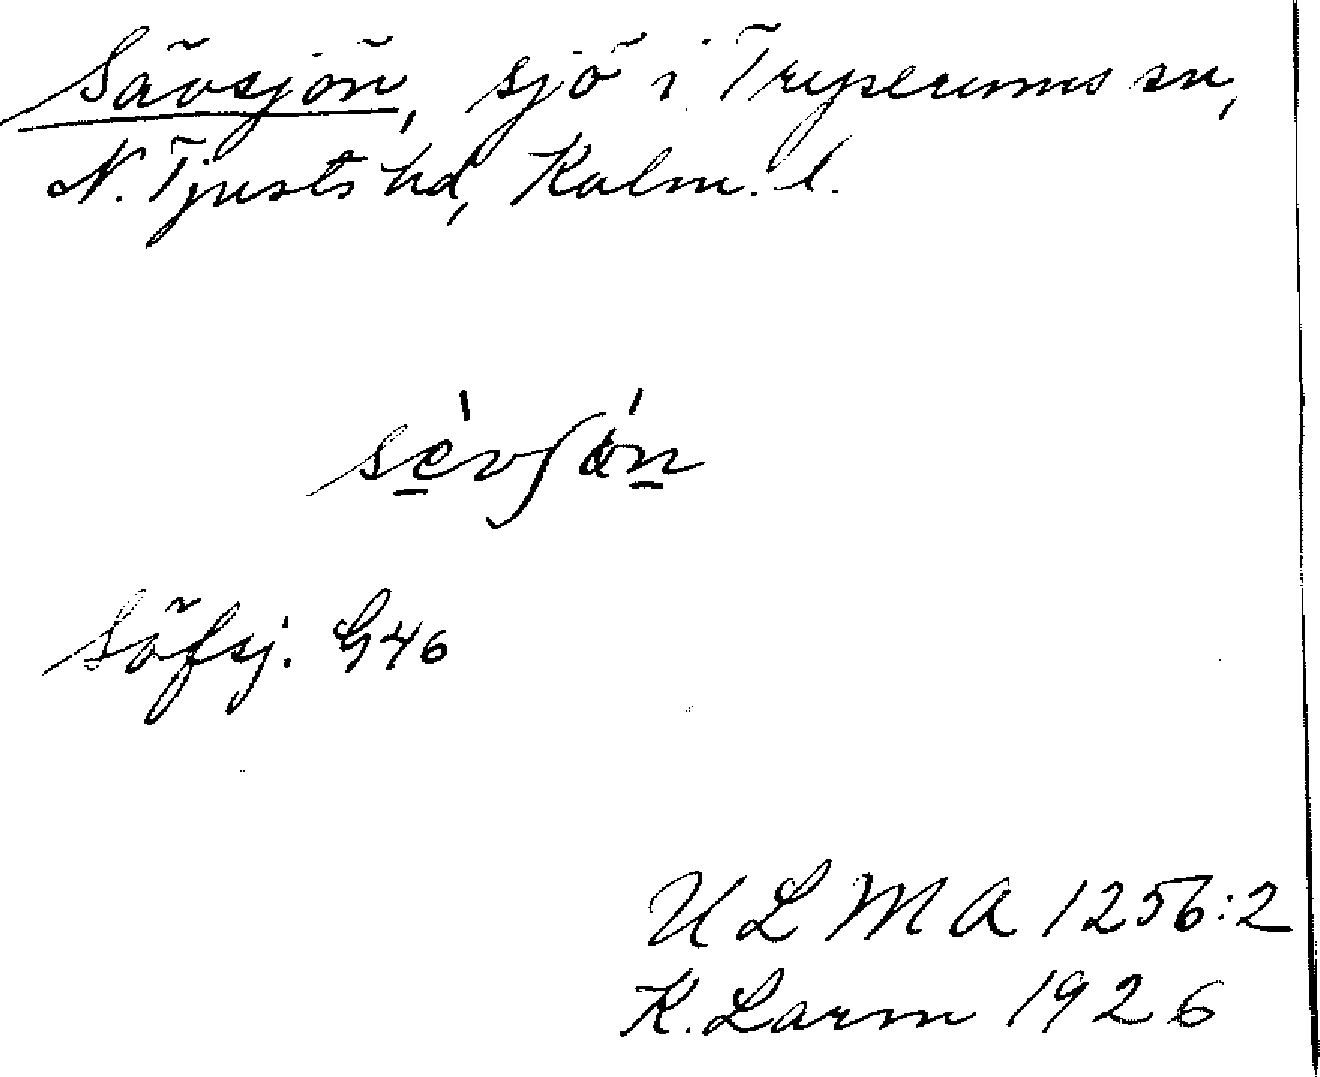 Sävsjön, sjö i Tryserums sn,
N. Tjusts hd, Kalm. l.
Säfsj. G46
ULMA 1256:2
K. Larm 1926